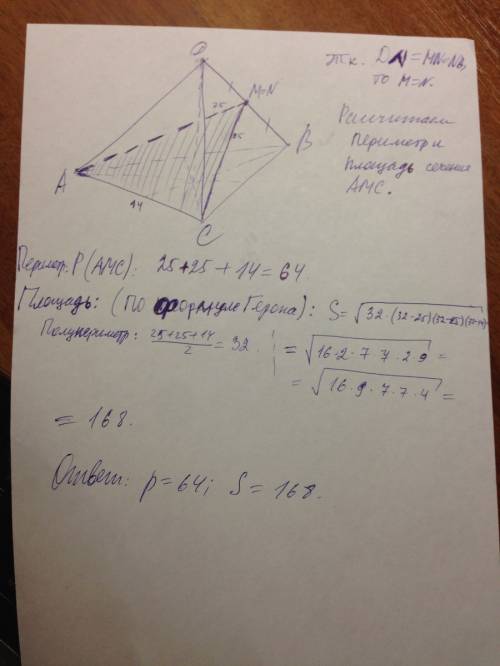 D
M=N
25
25
B
A
14
C
Т.к. DN=MN=NB,
то M=N.
Рассчитаем
периметр и
площадь сечения
AMC.
Периметр. P(AMC): 25+25+14=64
Площадь: (По формуле Герона): S=√32·(32-25)(32-25)(32-14)
Полупериметр: (25+25+14)/2=32.
=√16·2·7·7·2·9=
=√16·9·7·7·4=
=168.
Ответ: p=64; S=168.